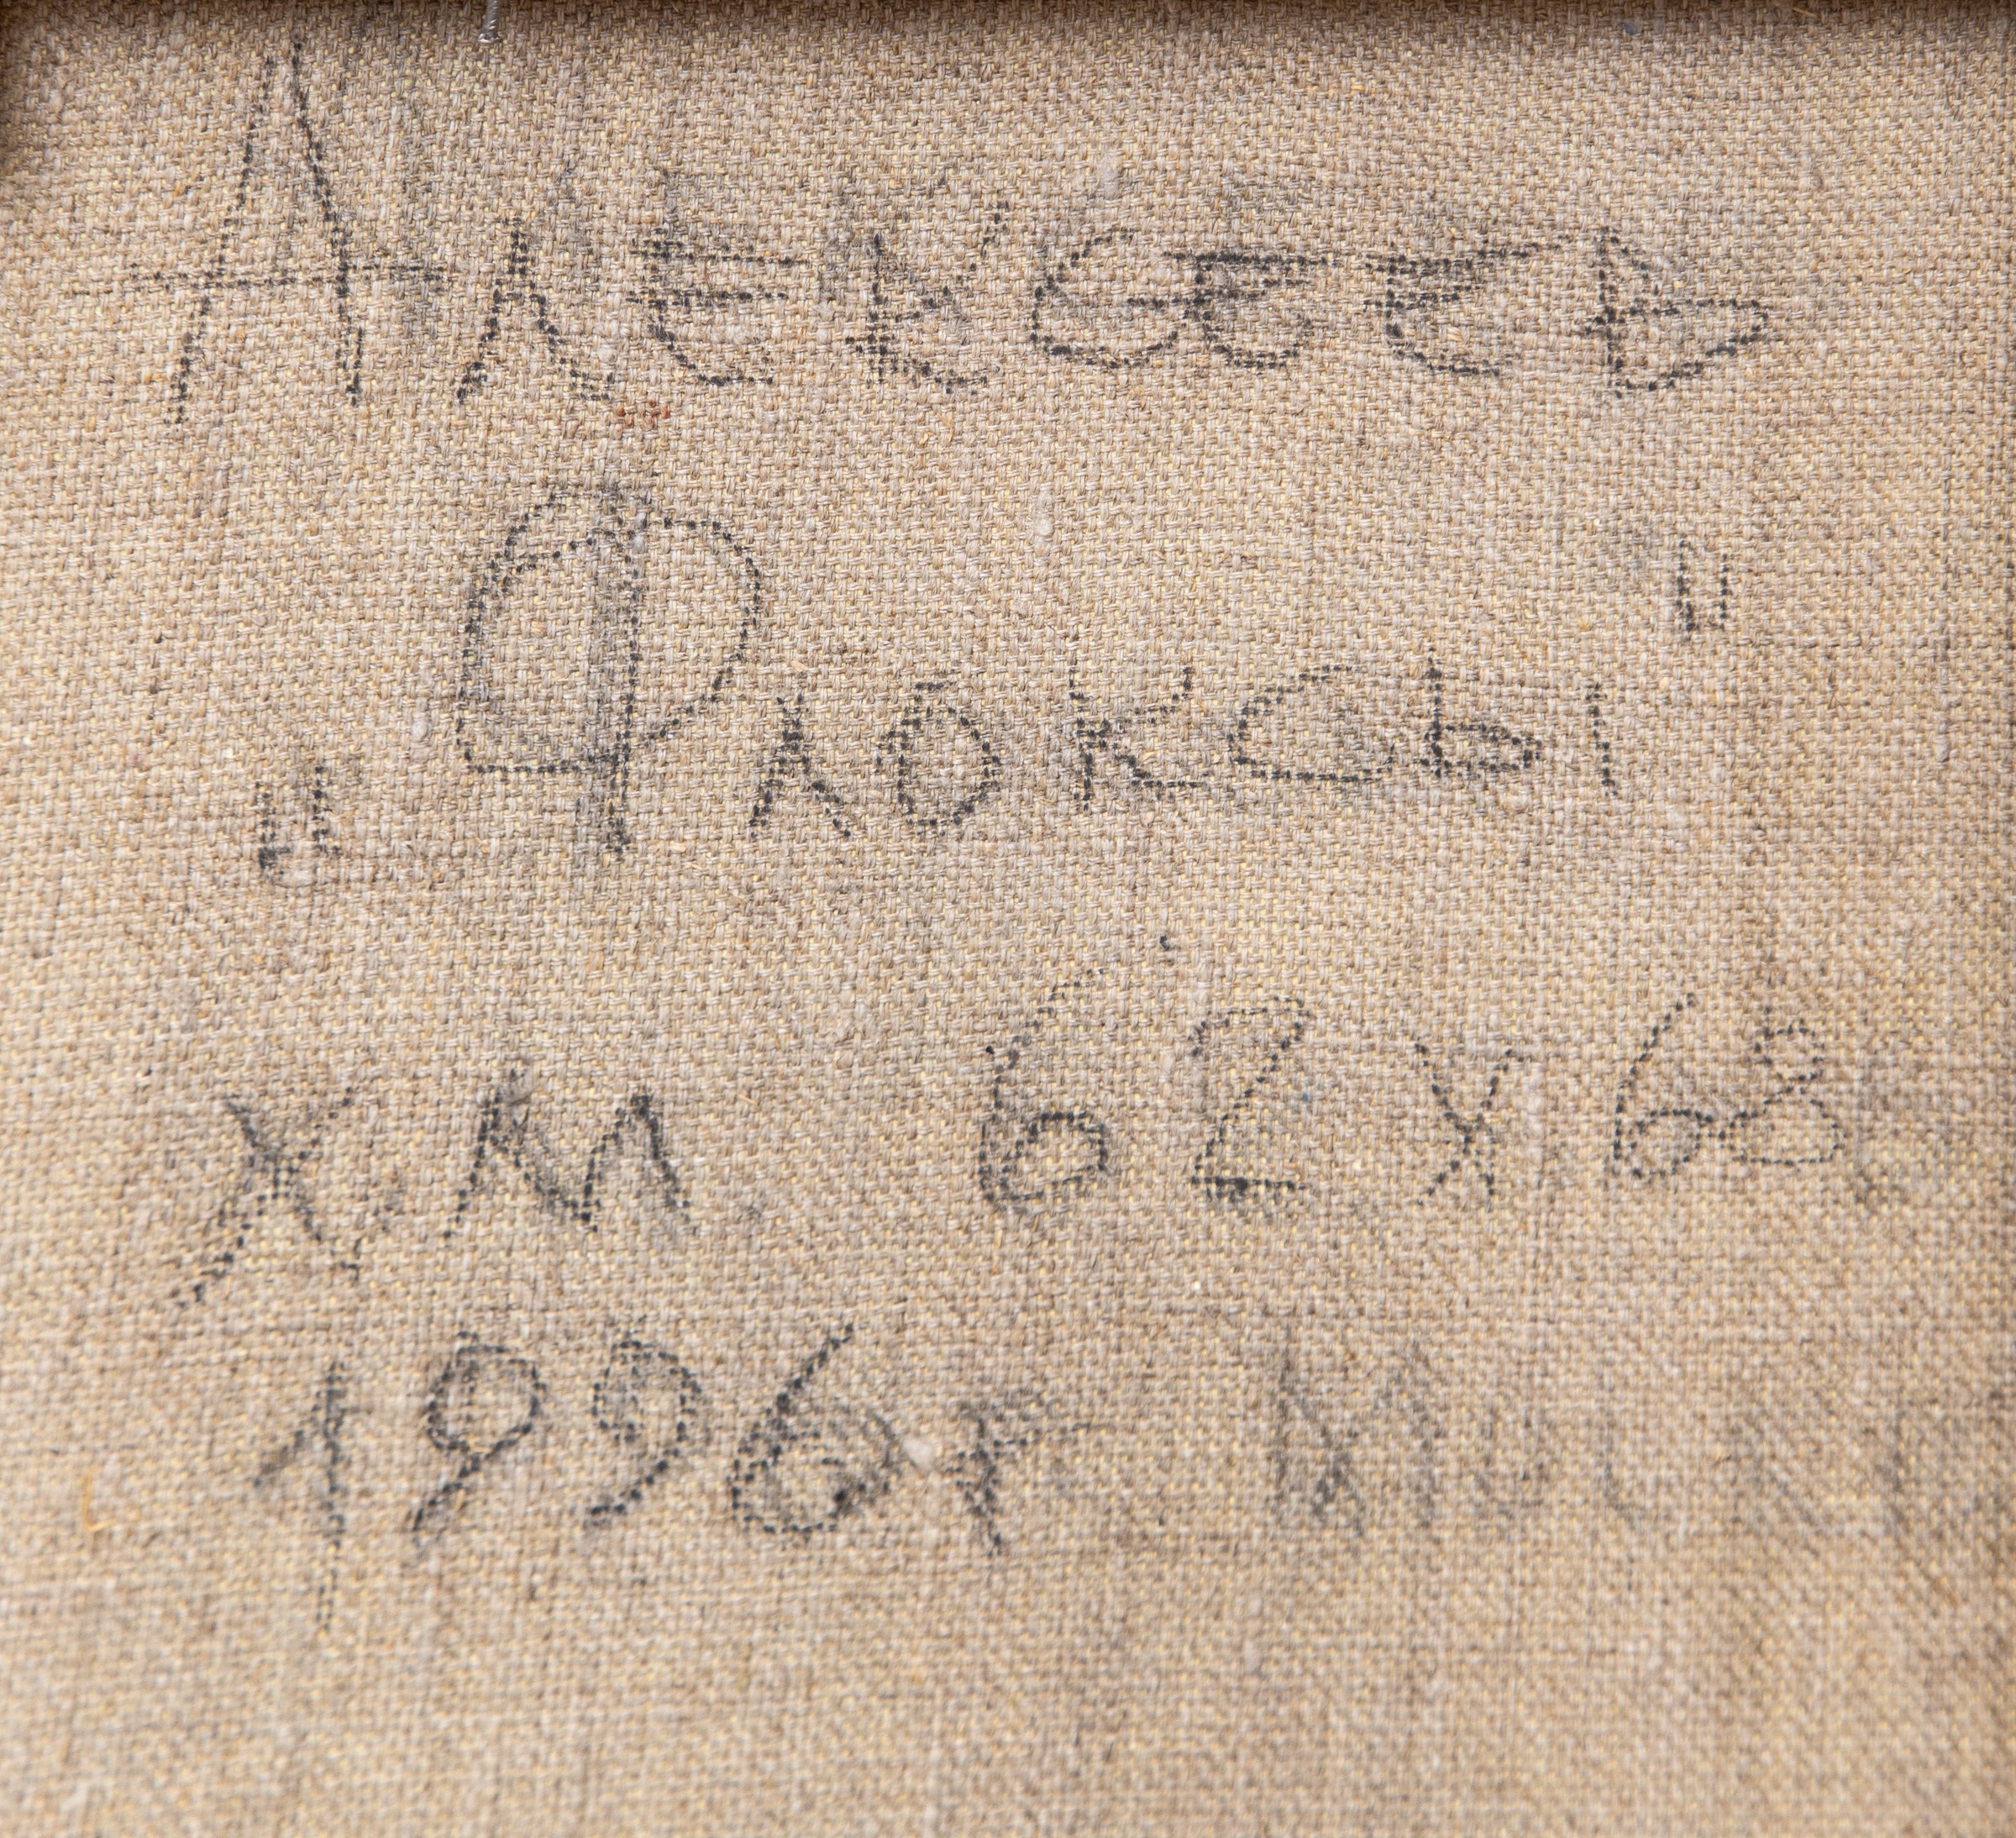 Алексеев
"Флоксы"
х.м 62х68
1996г